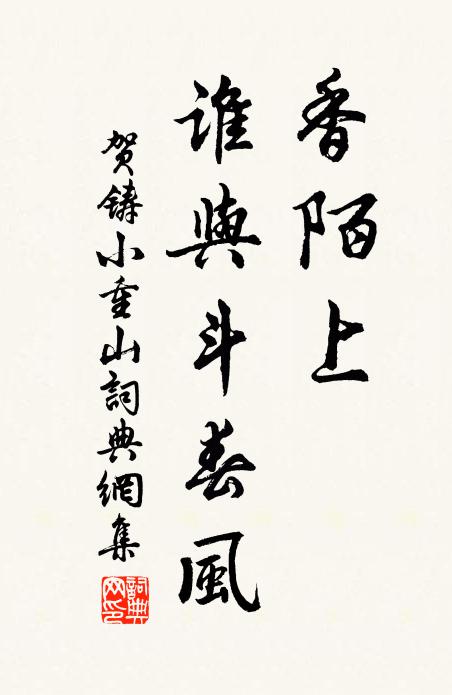 香陌上
誰與斗春風
贺鑄小重山詞典網集
詞典網印